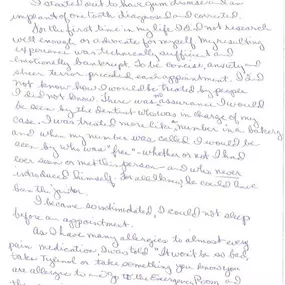 I started out to have gum disease & an
implant of one tooth diagnosed and corrected.
For the first time in my life I did not research
well enough or advocate for myself. My resulting
experience was technically sufficient and
emotionally bankrupt. To be concise, anxiety and
sheer terror preceded each appointment. I did
not know how I would be treated by people
I did not know. There was no assurance I would
be seen by the dentist who was in charge of my
case. I was treated more like a number in a bakery
and when my number was called I would be
seen by who was "free" - whether or not I had
ever seen or met this person - and who never
introduced himself. For all I know, he could have
been the janitor.
I became so intimidated, I could not sleep
before an appointment.
As I have many allergies to almost every
pain medication I was told "It won't be so bad,
take Tylenol or take something you know you
are allergic to and go to the Emergency Room and